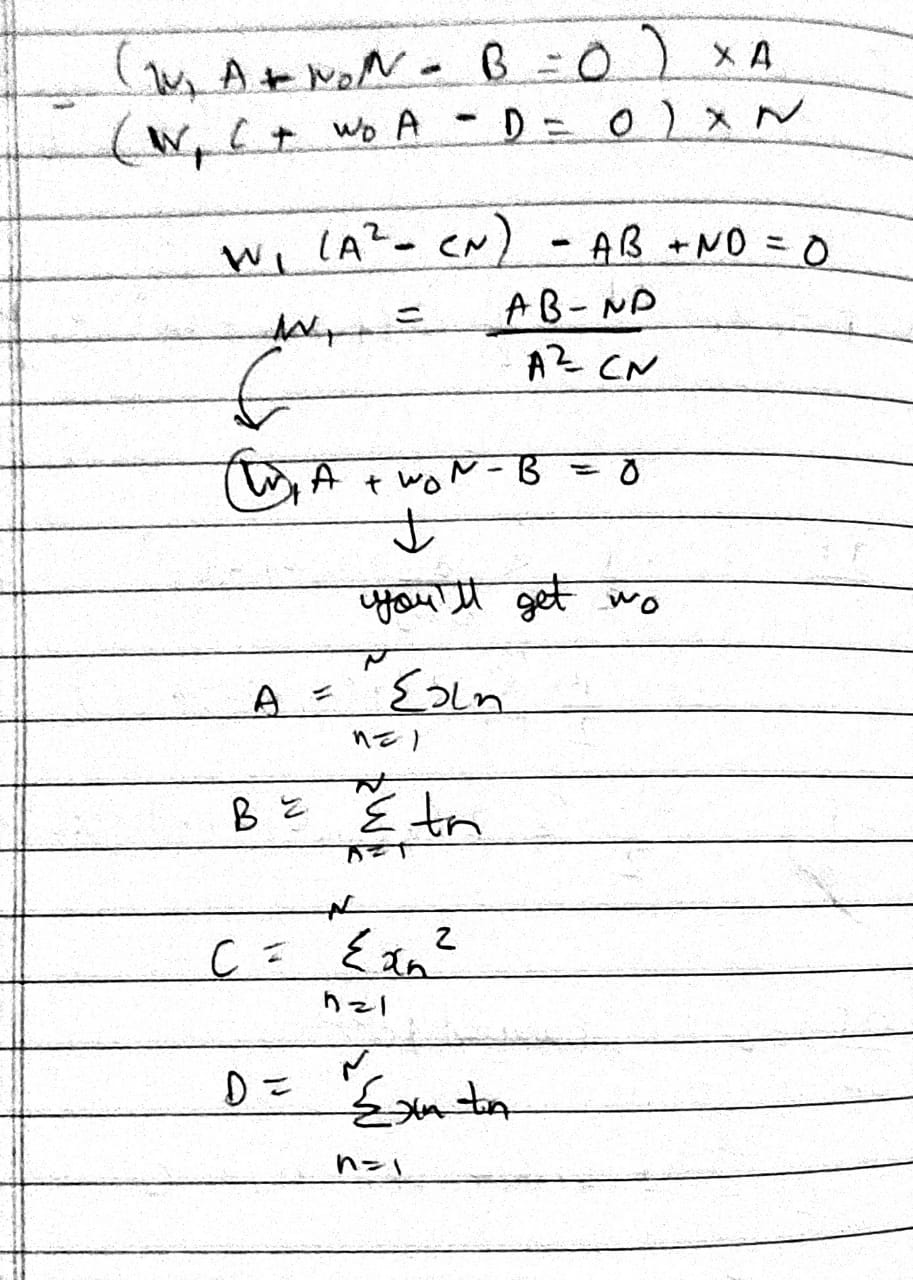 (W₁ A + W₀N - B = 0) × A
- (W₁ C + W₀ A - D = 0) × N
W₁ (A² - CN) - AB + ND = 0
W₁ = AB - ND
A² - CN
W₁ A + W₀ N - B = 0
↓
you'll get w₀
N
A = Σ xn
n=1
N
B = Σ tn
n=1
N
C = Σ xn²
n=1
N
D = Σ xn tn
n=1